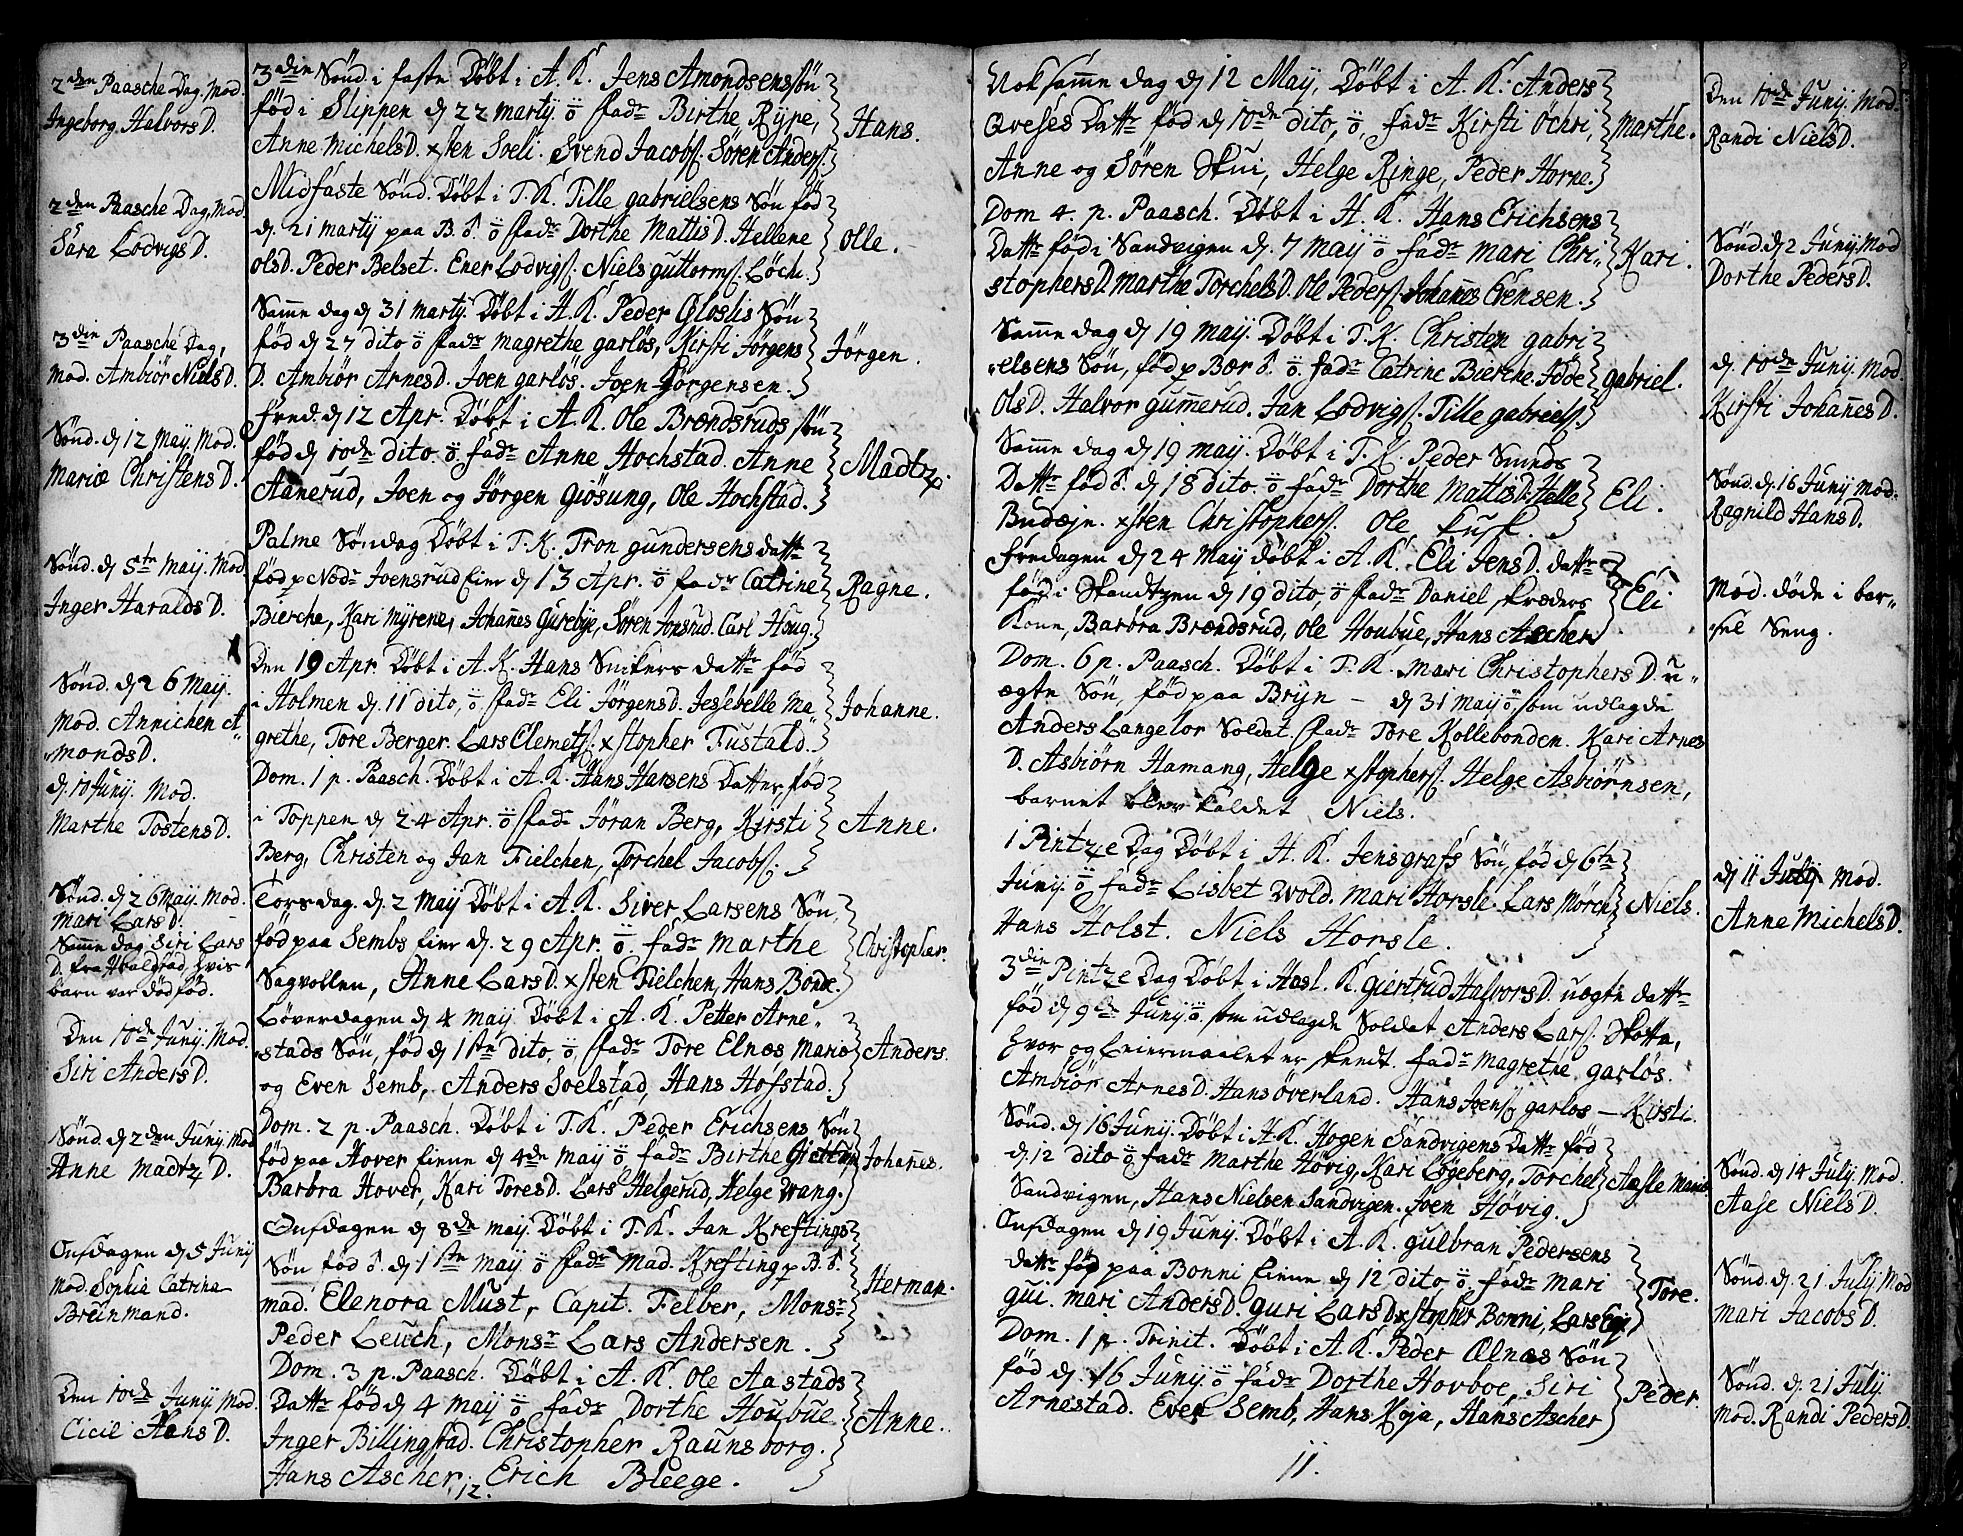 2den Paasche Dag. Mod.
Ingeborg Halvors D.
2den Paasche Dag, Mod.
Sara Lodvigs D.
3die Paasche Dag,
Mod. Ambiör Niels D.
Sönd. d 12 May. Mod.
Mariæ Christens D.
Sönd. d 5te Maij. Mod
Inger Haralds D.
Sönd. d 26 Maij.
Mod. Annichen A
monds D.
d. 10 Junij. Mod.
Marthe Tostens D.
Sönd. d 26 May. Mod.
Mari Lars D.
Samme dag Siri Lars
D. fra hvis
barn var död föd.
Den 10de Junij. Mod.
Siri Anders D.
Sönd. d 2den Junij Mod
Anne Madtz D.
Onsdagen d 5 Junij
Mod. Sophia Catrina
Breinmand.
Den 10de Junij Mod.
Cicil Hans D.
3die Sönd. i faste Döbt i A. K. Jens Amondsens Sön
föd i Slippen d 22 martij. ö fadr Birthe Rype,
Anne Michels D. xsten Soeli. Svend Jacobs. Sören Anders.
Hans.
Midfaste Sönd. Döbt i T. K. Tille gabrielsens Sön föd
d. 21 martij paa B. S. ö fadr Dorthe Mattis D. Hellene
Ols D. Peder Belset. Ener Lodvigs. Niels guttorms. Löch.
Olle.
Samme dag d 31 martij. Döbt i H. K. Peder Gloslis Sön
föd d 27 dito ö fadr magrethe garlös, Kirsti Jörgens
D. Ambiör Arnes D. Joen garlös. Joen Jörgensen.
Jörgen.
Fred. d 12 Apr. Döbt i A. K. Ole Brændsruds Sön
föd d 10de dito. ö. fadr Anne Hochstad. Anne
Aanerud, Joen og Jörgen Giösung, Ole Hochstad.
Madtz.
Palme Söndag Döbt i T. K. Tron gundersens dattr
föd p Nodr Joensrud Eier d 13 Apr. ö fadr Catrine
Bierche, Kari Myrene, Johannes Gurebye, Sören Jonsrud. Carl Haug.
Ragne.
Den 19 Apr. Döbt i A. K. Hans Snikers dattr föd
i Holmen d. 11 dito, ö fadr Eli Jörgens D. Jesebelle Ma
grethe, Tore Berger. Lars Clemets. xstopher Tustald.
Johanne.
Dom. 1 p. Paasch. Döbt i A. K. Hans Hansens Datter, föd
i Toppen d 24 Apr. ö fadr Jöran Berg, Kirsti
Berg, Christen og Jan Fielchen, Torchel Jacobs.
Anne.
Torsdag. d. 2 Maij Döbt i A. K. Siver Larsens Sön,
föd paa Sembs Eier d. 29 Apr. ö. fadr Marthe
Sagvollen, Anne Lars D. xsten Fielchen, Hans Bonde.
Christopher.
Löverdagen d 4 Maij. Döbt i A. K. Petter Arne
stads Sön, föd d 1ste dito, ö, fadr Tore Elnæs Mario
og Even Semb, Anders Soelstad, Hans Hofstad.
Anders.
Dom. 2 p. Paasch. Döbt i T. K. Peder Erichsens Sön
föd paa Hover Eiene d 4de May ö fadr Birthe
Barbra Hover, Kari Tores D. Lars Helgerud, Helge Wang.
Johannes.
Onsdagen d 8de maij. Döbt i T. K. Jan Kreftings
Sön föd S. d 1ste May ö fadr Mad. Krefting p B. S.
mad. Elenora Must, Capit. Felber, Monsr
Peder Leuch, Monsr Lars Andersen.
Herman.
Dom. 3 p. Paasch. Döbt i A. K. Ole Aastads
Dattr föd d 4 maij ö fadr Dorthe Houbue.
Inger Billingstad. Christopher Raunsborg.
Hans Ascher, Erich Bleege.
Anne.
12.
Nok samme dag d 12 May, Döbt i A. K. Anders
Qveses Dattr föd d 10de dito, ö, fadr Kirsti Öchri,
Anne og Sören Skui, Helge Ringe, Peder Horne.
Marthe.
Dom 4. p. Paasch. Döbt i H. K. Hans Erichsens
Dattr föd i Sandvigen d. 7 maij ö fadr mari Chri
stophers D. Marthe Torchels D. Ole Peders. Johannes Evensen.
Kari.
Samme dag d 19 maij. Döbt i T. K. Christen gabri
elsens Sön, föd p Bær S. ö. fadr Catrine Bierche. Jöde
Ols D. Halvor gummerud. Jan Lodvigs. Tille gabriels.
Gabriel.
Samme dag d 19 maij. Döbt i T. K. Peder Smeds
Dattr föd S. d 18 dito. ö fadr Dorthe Mattis D. Helle
Budæje. xsten Christophers. Ole Kusk.
Eli.
Fredagen d 24 May döbt i A. K. Eli Jens D. dattr
föd i Skandtzen d 19 dito, ö fadr Daniel skræders
Kone, Barbra Brændsrud, Ole Houbue, Hans Ascher
Eli
Dom. 6 p. Paasch. Döbt i T. K. Mari Christophers D. u
ægte Sön, föd paa Bryn - d 31 Maij ö, som udlagde
Anders Langelor Soldat. fadr Tore Kollebonden. Kari Arnes
D. Asbiörn Hamang, Helge xstophers. Helge Asbiörnsen,
barnet blev kaldet Niels.
1 Pintze Dag Döbt i H. K. Jens grafs Sön, föd d 6te
Junij. ö fadr Lisbet Wold. Mari Horsle. Lars Mörch
Hans Holst. Niels Horsle.
Niels.
3die Pintze Dag Döbt i Hasl. K. Giertrud Halvors D. uægte dattr
föd d 9de Junij. ö. som udlagde Soldat Anders Lars. Skotta,
hvor og Leiermaalet er skeedt. fadr Magrethe garlös.
Ambiör Arnes D. Hans Överland. Hans Joens. garlos — Kirsti.
Sönd. d 16 Junij. Döbt i H. K. Hogen Sandvigens Dattr föd
d. 12 dito ö fadr Marthe Hövig, Kari Lögeberg, Torchel
Sandvigen, Hans Nielsen Sandvigen. Joen Hövig.
Aasle Marie
Onsdagen d 19 Junij. Döbt i A. K. gulbran Pedersens
dattr föd paa Bonni Eiene d 12 dito ö. fadr mari
gui. mari Anders D. guri Lars D. xstopher Bonni, Lars Egi,
Tore.
Dom. 1 p. Trinit. Döbt i A. K. Peder Ælnæs Sön
föd d. 16 Junij. ö fadr Dorthe Hovboe, Siri
Arnestad. Even Semb, Hans Koja, Hans Ascher
Peder.
11.
Den 10de Junij. Mod.
Randi Niels D.
Sönd. d 2 Junij. Mod
Dorthe Peders D.
d. 10de Junij. Mod.
Kirsti Johannes D.
Sönd. d. 16 Junij Mod.
Ragnild Hans D.
Mod. döde i bar
sel Seng.
d 11 July Mod.
Anne Michels D.
Sönd. d 14 July. Mod.
Aase Niels D.
Sönd. d. 21 July Mod
mari Jacobs D.
Sönd. d. 21 July.
Mod. Randi Peders D.